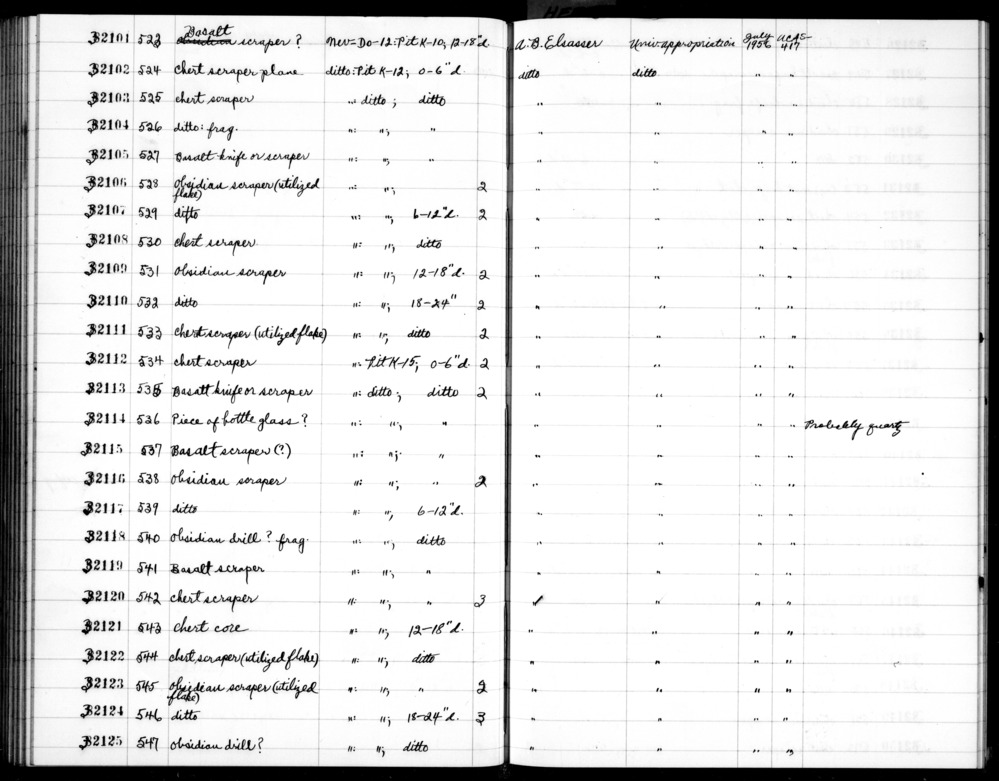 Basalt
32101 523 obsidian scraper? Nev-Do-12: Pit K-10; 12-18"d. A.B. Elsasser Univ. appropriation July 1956 acas-417
32102 524 chert scraper plane ditto: Pit K-12; 0-6"d. ditto ditto " "
32103 525 chert scraper " ditto; ditto " " " "
32104 526 ditto: frag. ": "; " " " " "
32105 527 Basalt knife or scraper ": "; " " " " "
32106 528 obsidian scraper (utilized flake) ": "; 2 " " " "
32107 529 ditto ": "; 6-12"d. 2 " " " "
32108 530 chert scraper ": "; ditto " " " "
32109 531 obsidian scraper ": "; 12-18"d. 2 " " " "
32110 532 ditto ": "; 18-24" 2 " " " "
32111 533 chert scraper (utilized flake) ": "; ditto 2 " " " "
32112 534 chert scraper ": Pit K-15; 0-6"d. 2 " " " "
32113 535 Basalt knife or scraper ": ditto; ditto 2 " " " "
32114 536 Piece of bottle glass? ": "; " " " " " Probably quartz
32115 537 Basalt scraper (?) ": "; " " " " "
32116 538 obsidian scraper ": "; " 2 " " " "
32117 539 ditto ": "; 6-12"d. " " " "
32118 540 obsidian drill? frag. ": "; ditto " " " "
32119 541 Basalt scraper ": "; " " " " "
32120 542 chert scraper ": "; " 3 " " " "
32121 543 chert core ": "; 12-18"d. " " " "
32122 544 chert scraper (utilized flake) ": "; ditto " " " "
32123 545 obsidian scraper (utilized flake) ": "; " 2 " " " "
32124 546 ditto ": "; 18-24"d. 3 " " " "
32125 547 obsidian drill? ": "; ditto " " " "